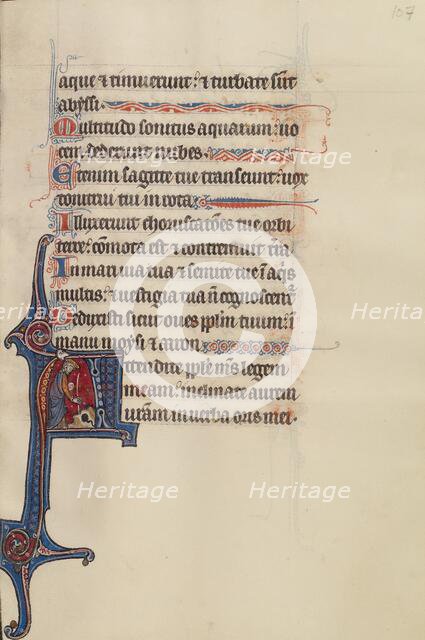 107
aque & timuerunt: & turbate sūt
abyssi.
Multitudo sonitus aquarum: uo
cem dederunt nubes.
Etenim sagitte tue transeunt: uox
tonitrui tui in rota.
Illuxerunt choruscatōes tue orbi
terre: cōmota est & contremuit t̄ra
In mari uia tua & semite tue ī aq̄s
multis: & uestigia tua n̄ cognoscent̄
Deduxisti sicut oues pplm̄ tuum: ī
manu moysi & aaron.
Attendite pple m̄s legem
meam: inclinate aurem
urām in uerba oris mei.
Heritage
Heritage
Heritage
Heritage
Heritage
Heritage